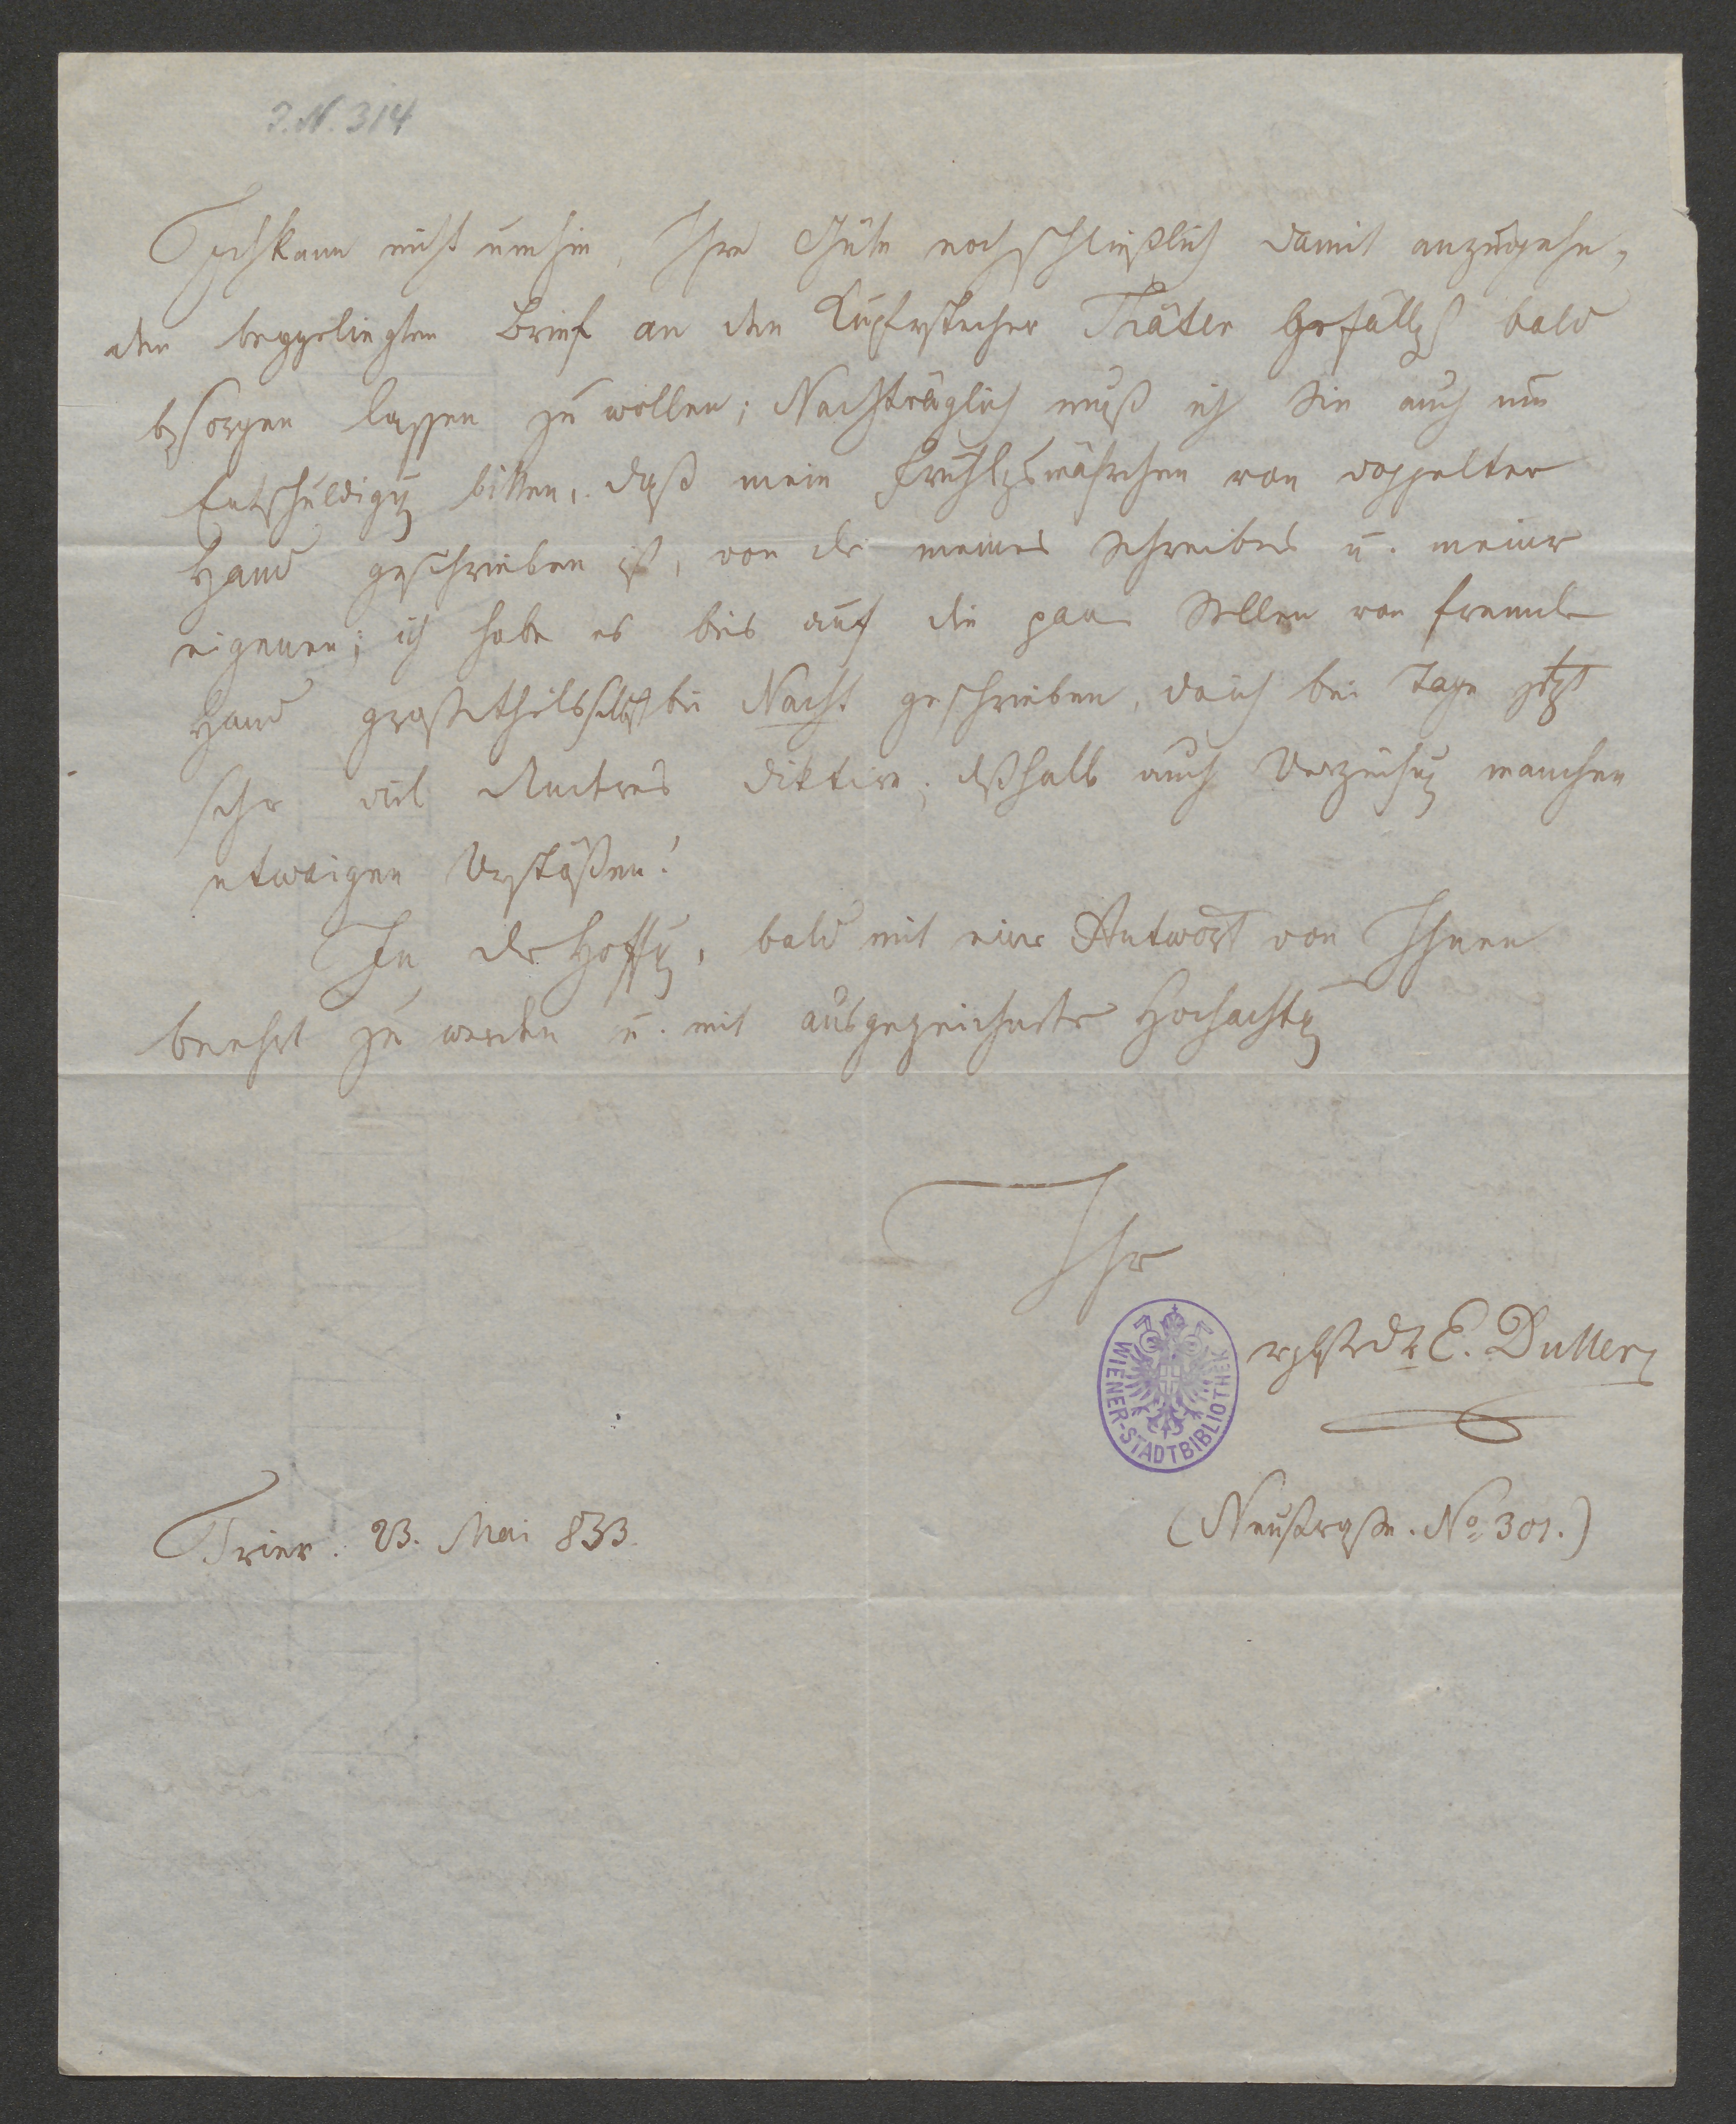 I.N. 314
Ich kann nicht umhin, Ihre Güte noch schließlich damit anzugehen,
den beygeliegten Brief an den Kupferstecher Thäter gefälligst bald
besorgen lassen zu wollen; Nachträglich muß ich Sie auch um
Entschuldigung bitten, daß mein Frühlingsmährchen von doppelter
Hand geschrieben ist, von der meines Schreibers u. meiner
eigenen; ich habe es bis auf die paar Stellen von fremder
Hand großtentheils selbst bei Nacht geschrieben, da ich bei Tage jetzt
sehr viel Andres diktire; deßhalb auch Verzeihung manchen
etwaigen Verstößen!
In der Hoffnung, bald mit einer Antwort von Ihnen
beehrt zu werden u. mit ausgezeichneter Hochachtung
Ihr
ergebenster Dr E. Duller
WIENER-STADTBIBLIOTHEK
(Neustraße. No 301.)
Trier. 23. Mai 833.